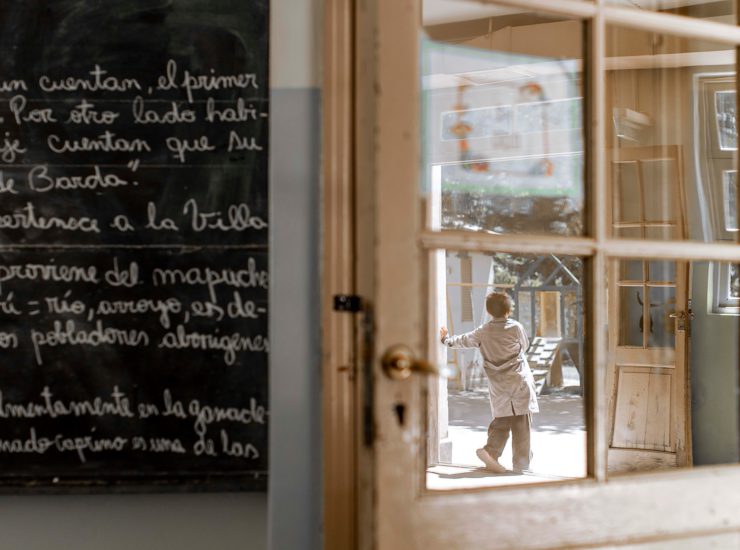 un cuentan, el primer
Por otro lado habi-
je cuentan que su
de Barda."
pertenece a la Villa
proviene del mapuche
= río, arroyo, es de-
os pobladores aborígenes
lmentamente en la ganade-
anado caprino es una de las